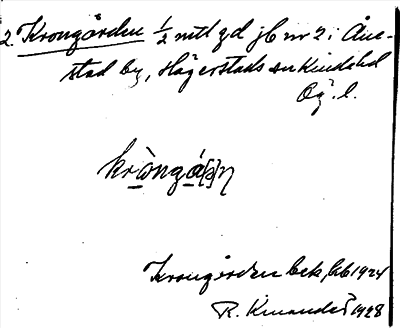 2. Krongården ½ mtl gd jb nr 2 i Åne-
stad by, Hägerstads sn Kinds hd
Ög. l.
Krongården bek, jb 1924
R. Kinander 1928